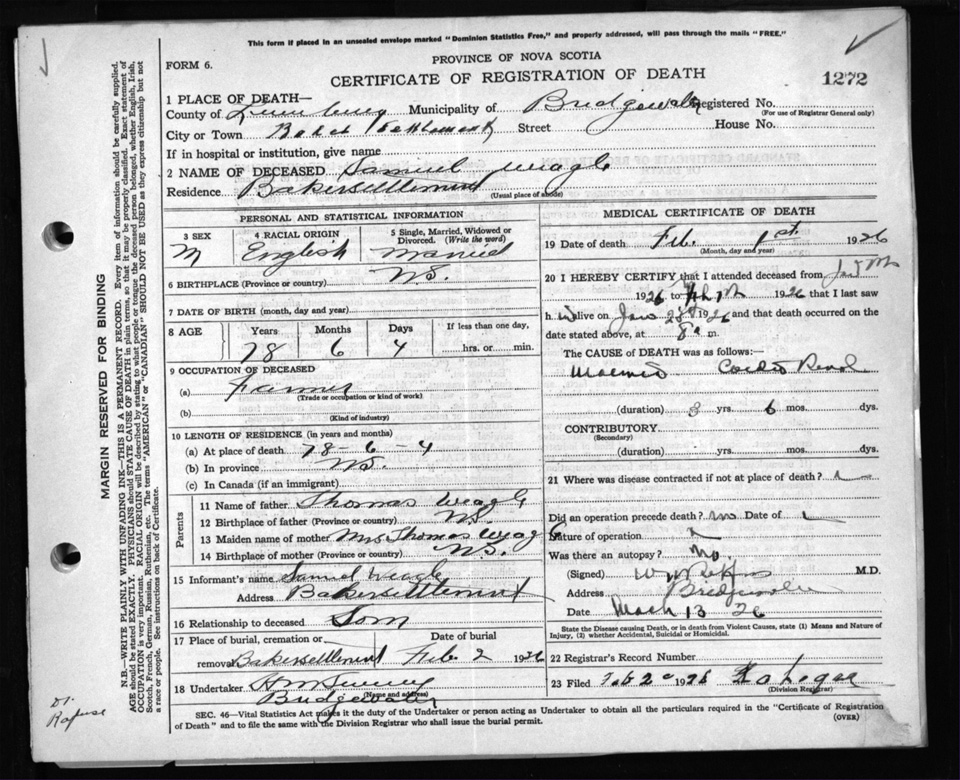 This form if placed in an unsealed envelope marked "Dominion Statistics Free," and properly addressed, will pass through the mails "FREE."
FORM 6.
PROVINCE OF NOVA SCOTIA
CERTIFICATE OF REGISTRATION OF DEATH
1272
1 PLACE OF DEATH—
County of Lunenburg Municipality of Bridgewater Registered No.
(For use of Registrar General only)
City or Town Baker Settlement Street House No.
If in hospital or institution, give name
2 NAME OF DECEASED Samuel Weagle
Residence Bakersettlement
(Usual place of abode)
PERSONAL AND STATISTICAL INFORMATION
3 SEX
M
4 RACIAL ORIGIN
English
5 Single, Married, Widowed or Divorced. (Write the word)
Married
6 BIRTHPLACE (Province or country) N.S.
7 DATE OF BIRTH (month, day and year)
8 AGE Years Months Days If less than one day,
78 6 4 hrs. or min.
9 OCCUPATION OF DECEASED
(a) Farmer
(Trade or occupation or kind of work)
(b)
(Kind of industry)
10 LENGTH OF RESIDENCE (in years and months)
(a) At place of death 78 - 6 - 4
(b) In province N.S.
(c) In Canada (if an immigrant)
Parents
11 Name of father Thomas Weagle
12 Birthplace of father (Province or country) N.S.
13 Maiden name of mother Mrs Thomas Weagle
14 Birthplace of mother (Province or country) N.S.
15 Informant's name Samuel Weagle
Address Bakersettlement
16 Relationship to deceased Son
17 Place of burial, cremation or removal Bakersettlement
Date of burial Feb 2 1926
18 Undertaker
(Name and address)
Bridgewater
MEDICAL CERTIFICATE OF DEATH
19 Date of death Feb. 1st. 1926
(Month, day and year)
20 I HEREBY CERTIFY that I attended deceased from Jan
1926 to 1926 that I last saw
h alive on Jan 28 1926 and that death occurred on the
date stated above, at 8 a m.
The CAUSE OF DEATH was as follows:
Cardio Renal
(duration) 3 yrs. 6 mos. dys.
CONTRIBUTORY
(Secondary)
(duration) yrs. mos. dys.
21 Where was disease contracted if not at place of death?
Did an operation precede death? no Date of
Nature of operation
Was there an autopsy? No.
(Signed) M.D.
Address Bridgewater
Date March 13 26
State the Disease causing Death, or in death from Violent Causes, state (1) Means and Nature of Injury, (2) whether Accidental, Suicidal or Homicidal.
22 Registrar's Record Number
23 Filed Feb 2 1926
(Division Registrar)
SEC. 46—Vital Statistics Act makes it the duty of the Undertaker or person acting as Undertaker to obtain all the particulars required in the "Certificate of Registration
of Death" and to file the same with the Division Registrar who shall issue the burial permit.
(OVER)
MARGIN RESERVED FOR BINDING
N.B.—WRITE PLAINLY WITH UNFADING INK—THIS IS A PERMANENT RECORD. Every item of information should be carefully supplied.
AGE should be stated EXACTLY. PHYSICIANS should STATE CAUSE OF DEATH in plain terms, so that it may be properly classified. Exact statement of
OCCUPATION is very important. RACIAL ORIGIN will be described by stating to what people or tongue the deceased person belonged, whether English, Irish,
Scotch, French, German, Russian, Ruthenian, etc. The terms "AMERICAN" or "CANADIAN" SHOULD NOT BE USED as they express citizenship but not
a race or people. See instructions on back of Certificate.